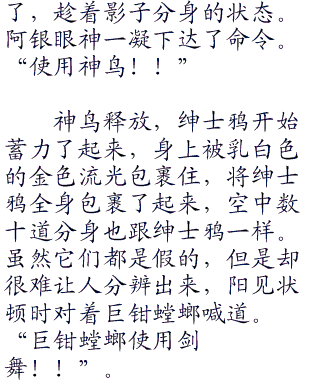 了，趁着影子分身的状态。
阿银眼神一凝下达了命令。
“使用神鸟！！”
神鸟释放，绅士鸦开始
蓄力了起来，身上被乳白色
的金色流光包裹住，将绅士
鸦全身包裹了起来，空中数
十道分身也跟绅士鸦一样。
虽然它们都是假的，但是却
很难让人分辨出来，阳见状
顿时对着巨钳螳螂喊道。
“巨钳螳螂使用剑
舞！！”。